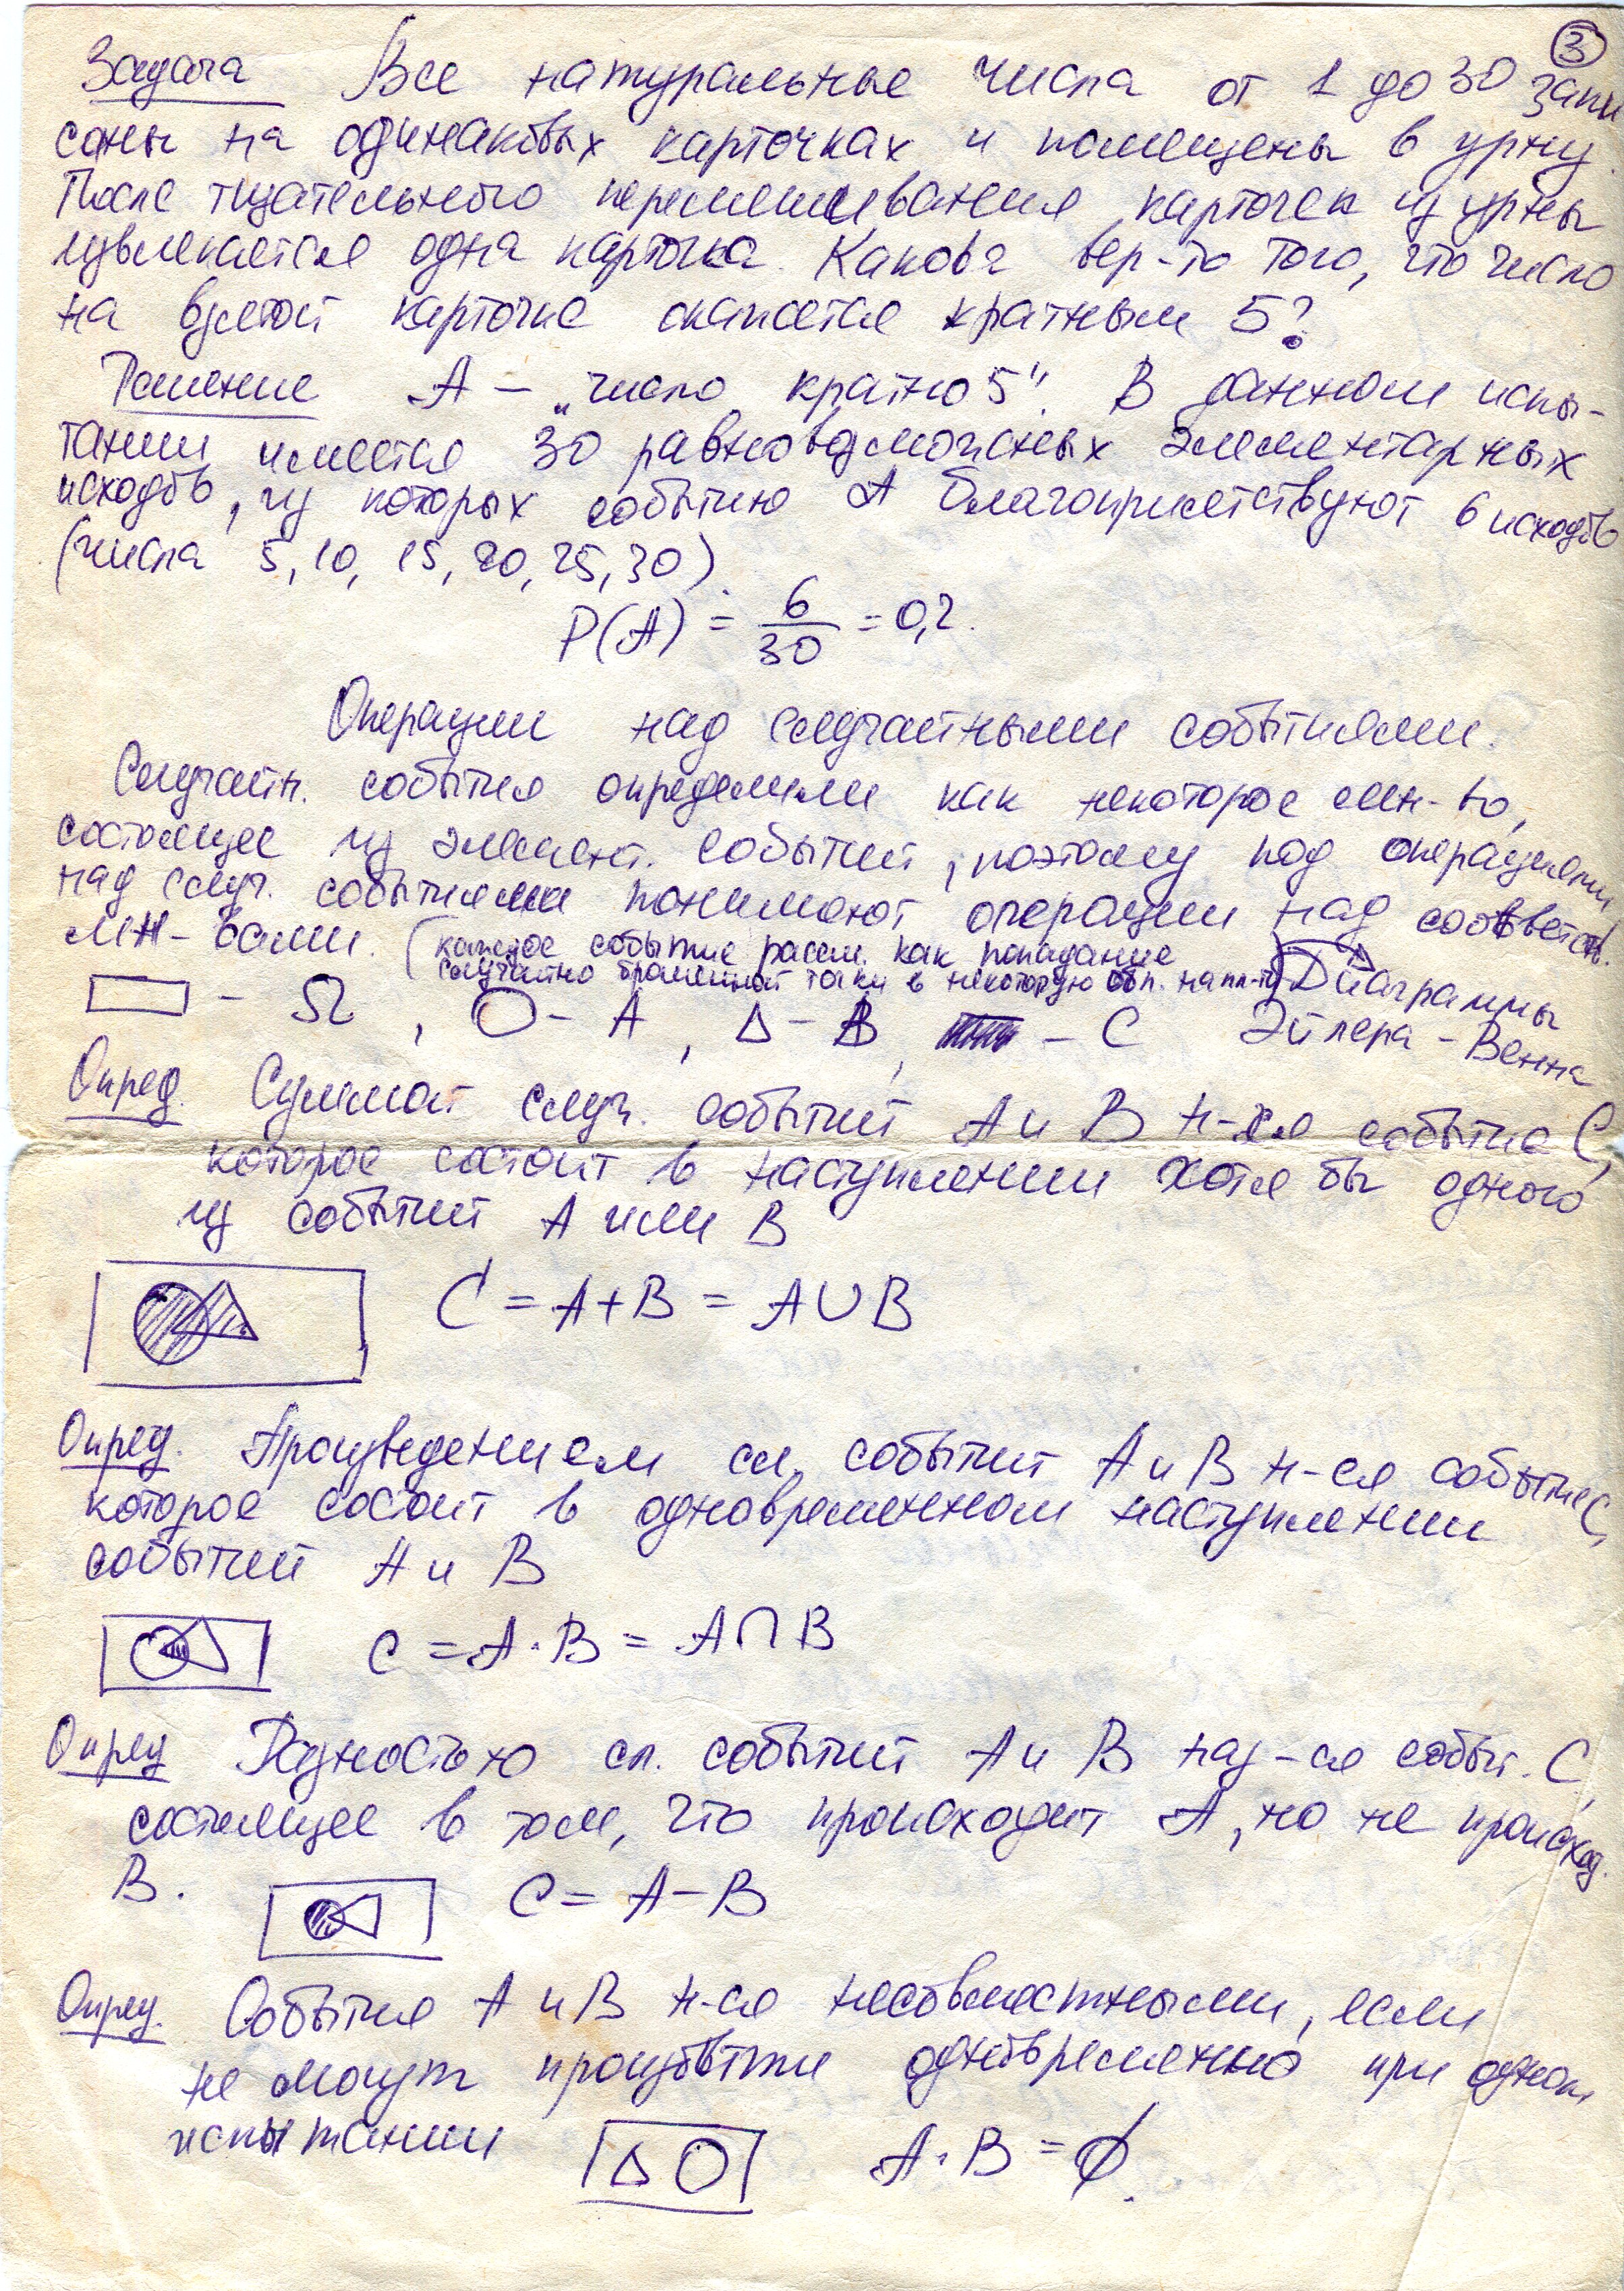 3
Задача Все натуральные числа от 1 до 30 запи
саны на одинаковых карточках и помещены в урну.
После тщательного перемешивания карточек из урны
извлекается одна карточка. Какова вер-то того, что число
на взятой карточке окажется кратным 5?
Решение А – „число кратно 5". В данном испы-
тании имеется 30 равновозможных элементарных
исходов, из которых событию А благоприятствуют 6 исходов
(числа 5, 10, 15, 20, 25, 30).
P(A) = 6/30 = 0,2.
Операции над случайными событиями.
Случайн. события определили как некоторое мн-во,
состоящее из элемент. событий, поэтому под операциями
над случ. событиями понимают операции над соответств.
мн-вами. (каждое событие рассм. как попадание
случайно брошенной точки в некоторую обл. на пл-ти) Диаграммы
▭ – Ω, ○ – A, Δ – B, – C Эйлера – Венна
Опред. Суммой случ. событий А и В н-ся событие С,
которое состоит в наступлении хотя бы одного
из событий А или В
C = A + B = A ∪ B
Опред. Произведением сл. событий А и В н-ся событие С,
которое состоит в одновременном наступлении
событий А и В
C = A · B = A ∩ B
Опред Разностью сл. событий А и В наз-ся событ. С,
состоящее в том, что происходит А, но не происход.
В. C = A – B
Опред. События А и В н-ся несовместными, если
не могут произойти одновременно при одном
испытании A · B = ∅.